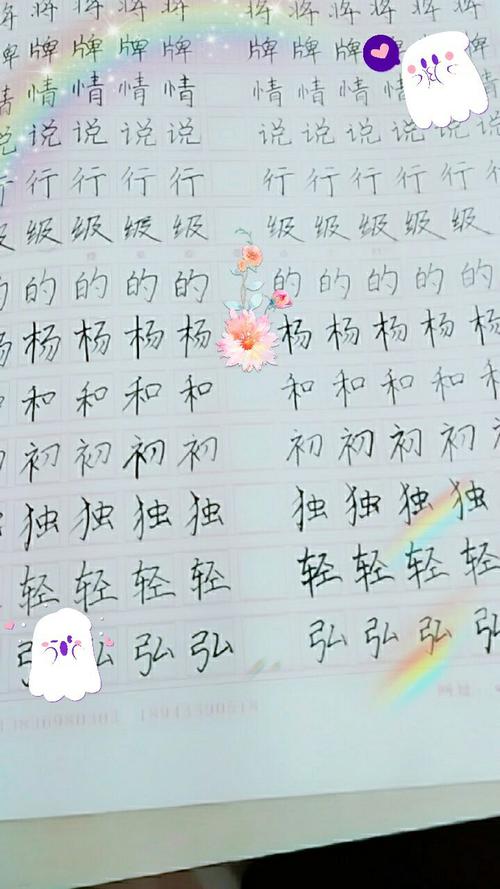 将 将 将 将 将 将 将 将 将
牌 牌 牌 牌 牌 牌 牌 牌 牌 牌
情 情 情 情 情 情 情 情 情 情
说 说 说 说 说 说 说 说 说 说
行 行 行 行 行 行 行 行 行 行 行
级 级 级 级 级 级 级 级 级 级
的 的 的 的 的 的 的 的 的 的
杨 杨 杨 杨 杨 杨 杨 杨 杨 杨
和 和 和 和 和 和 和 和 和
初 初 初 初 初 初 初 初 初
独 独 独 独 独 独 独 独
轻 轻 轻 轻 轻 轻 轻 轻
弘 弘 弘 弘 弘 弘 弘